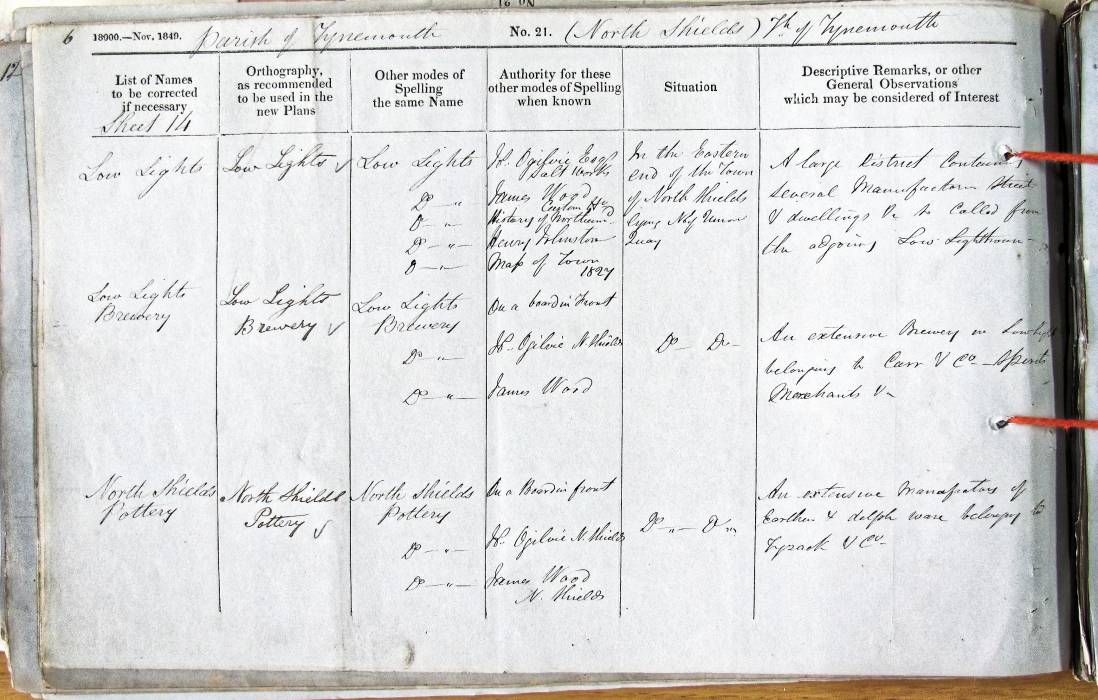 6
18900.—Nov. 1849.
Parish of Tynemouth
No. 21. (North Shields) Tp. of Tynemouth
12
List of Names
to be corrected
if necessary
Sheet 14
Orthography,
as recommended
to be used in the
new Plans
Other modes of
Spelling
the same Name
Authority for these
other modes of Spelling
when known
Situation
Descriptive Remarks, or other
General Observations
which may be considered of Interest
Low Lights
Low Lights
Low Lights
Do "
Do "
Do "
Do "
Ogilvie Esqr
Salt Works
James Wood
Custom Ho
History of Northumd
Henry Johnston
Map of Town
1827
In the Eastern
end of the Town
of North Shields
lying Union
Quay
A large District Containing
Several Manufactories Streets
& dwellings &c so Called from
the adjoining Low Lighthouse
Low Lights
Brewery
Low Lights
Brewery
Low Lights
Brewery
Do "
Do "
On a board in Front
Ogilvie N. Shields
James Wood
Do Do
An extensive Brewery in Low Lights
belonging to Carr & Co Spirit
Merchants &c
North Shields
Pottery
North Shields
Pottery
North Shields
Pottery
Do "
Do "
On a Board in front
Ogilvie N. Shields
James Wood
N. Shields
Do " Do "
An extensive Manufactory of
Earthen & delph ware belonging to
Tyzack & Co